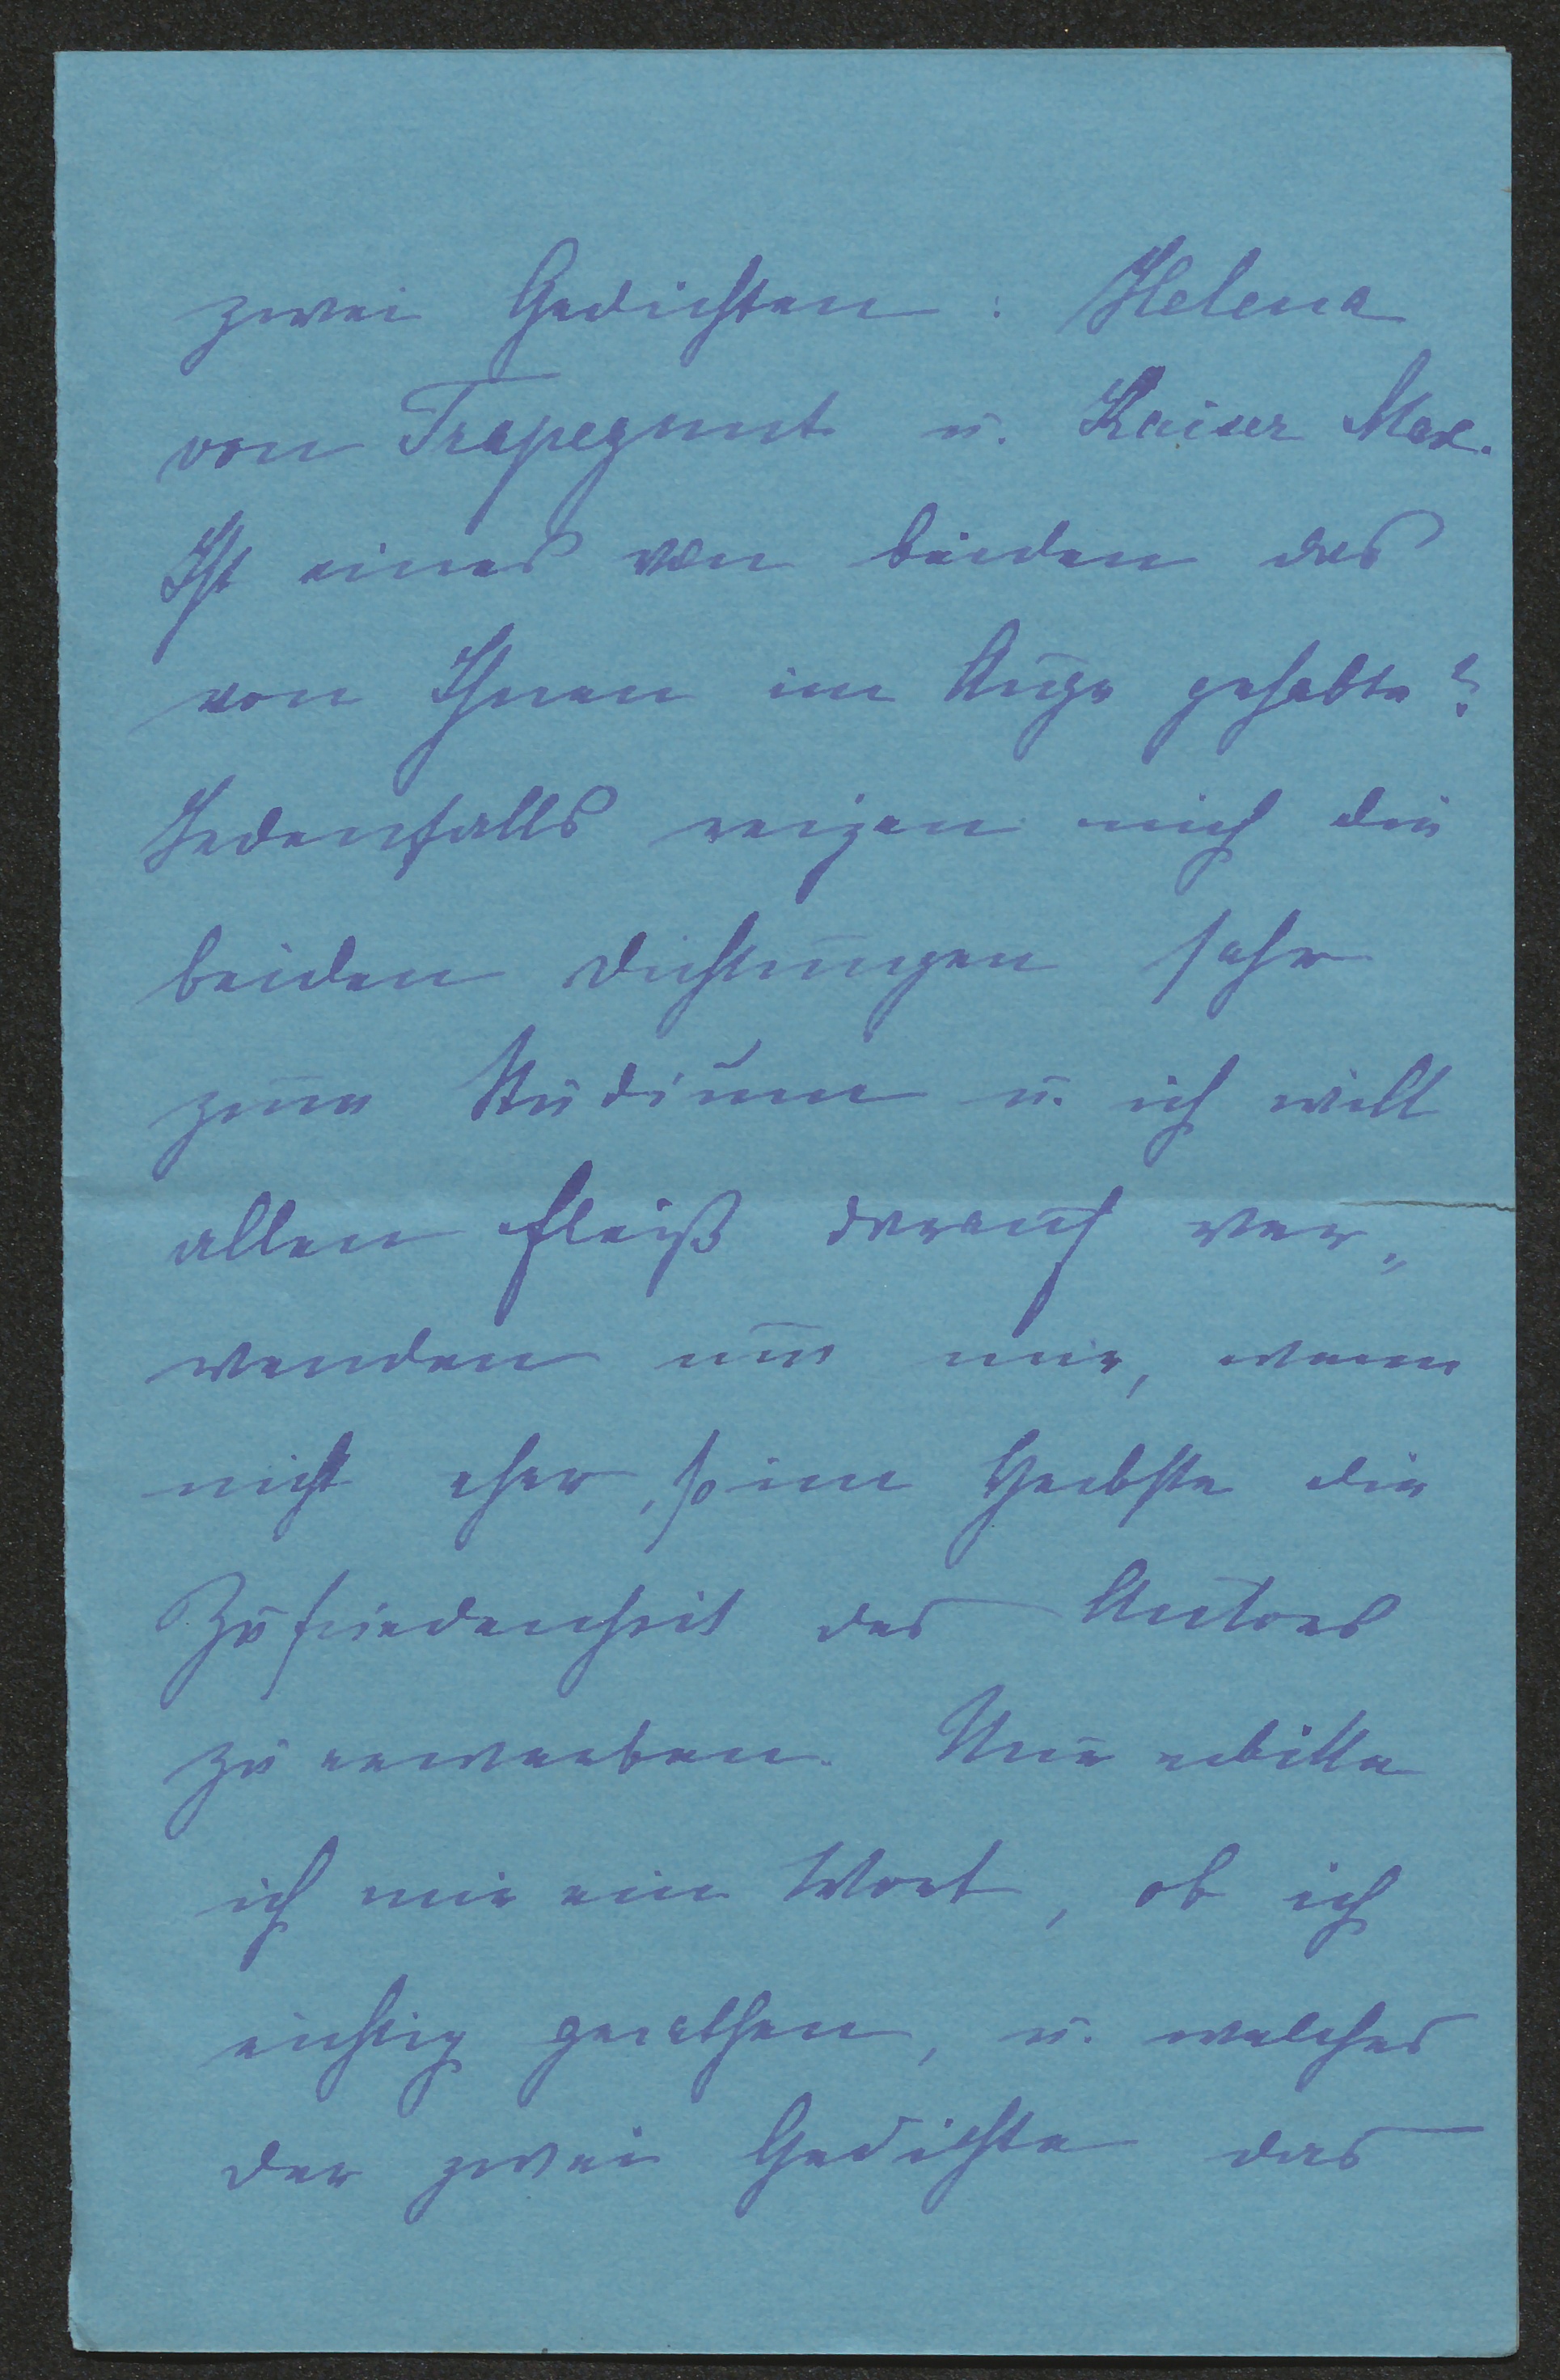 zwei Gedichten: Helena
von Trapezunt u. Kaiser Max.
Ist eines von beiden das
von Ihnen im Auge gehabte?
Jedenfalls reizen mich die
beiden Dichtungen sehr
zum Studium u. ich will
allen Fleiß darauf ver„
wenden um mir, wenn
nicht eher, so im Herbste die
Zufriedenheit des Autors
zu erwerben. Nun erbitte
ich mir ein Wort, ob ich
richtig gerathen, u. welches
der zwei Gedichte das